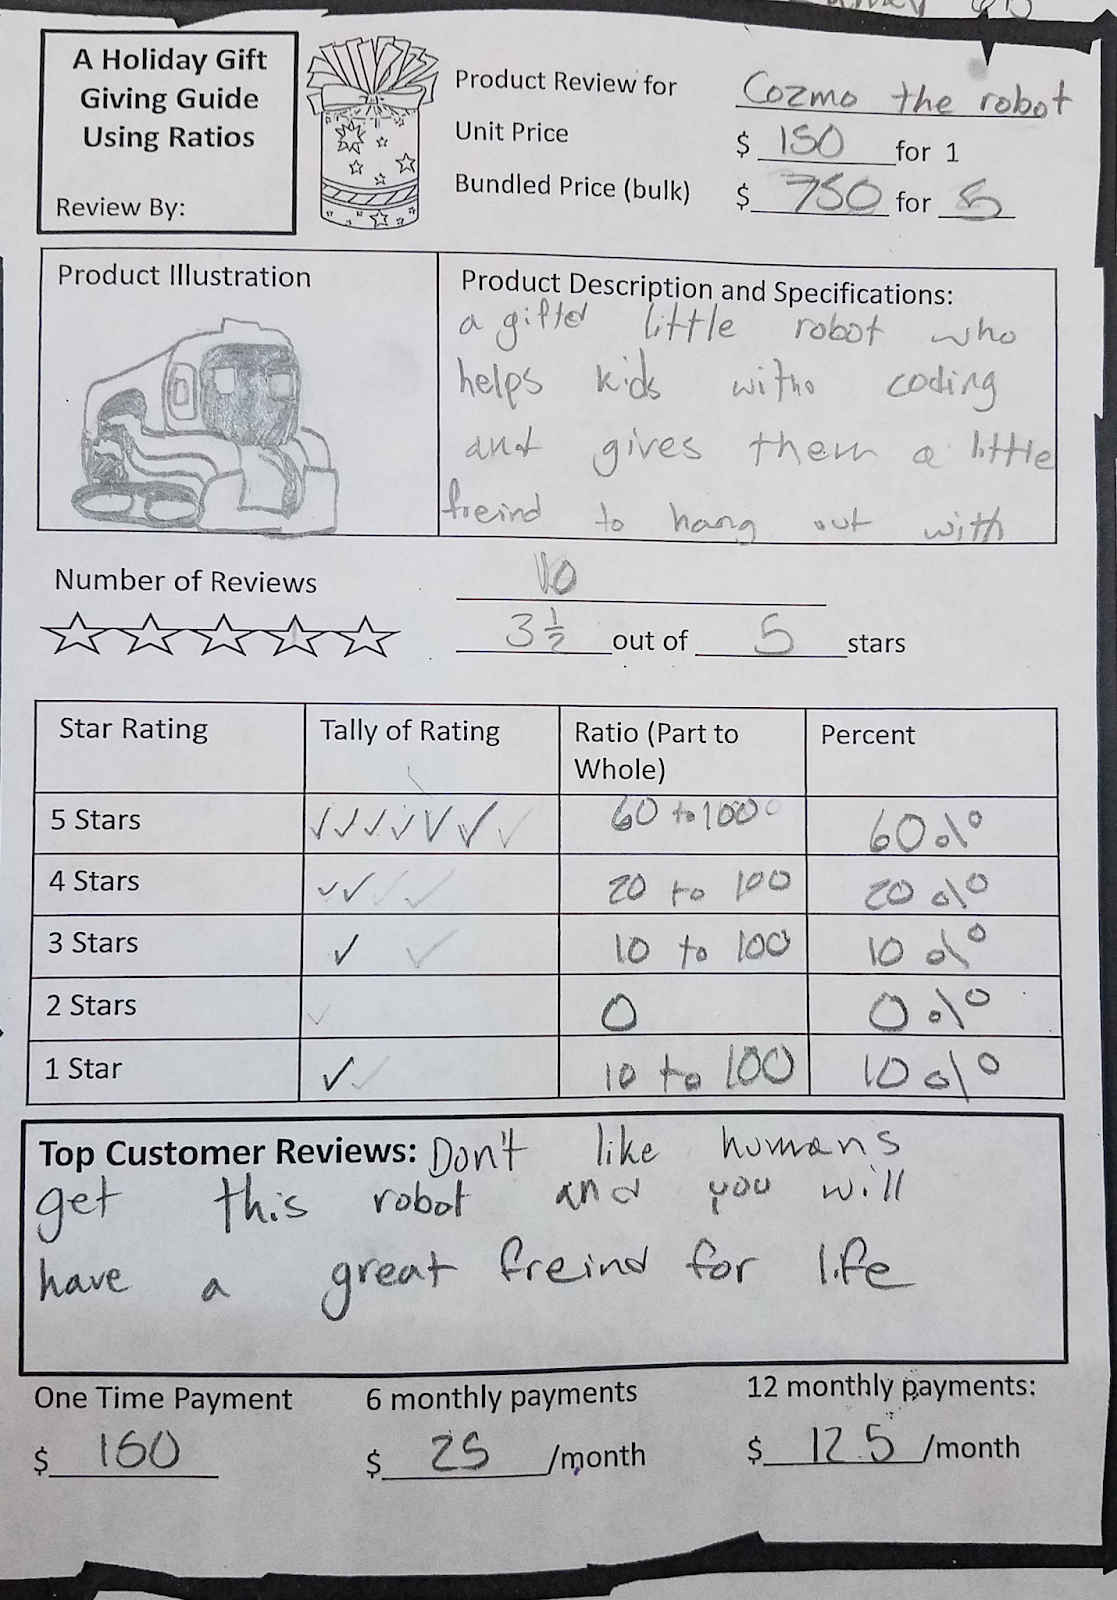 A Holiday Gift
Giving Guide
Using Ratios
Review By:
Product Review for Cozmo the robot
Unit Price $ 150 for 1
Bundled Price (bulk) $ 750 for 5
Product Illustration
Product Description and Specifications:
a gifted little robot who
helps kids with coding
and gives them a little
freind to hang out with
Number of Reviews 10
3 1/2 out of 5 stars
Star Rating Tally of Rating Ratio (Part to Whole) Percent
5 Stars ✓✓✓✓✓✓ 60 to 100 60%
4 Stars ✓✓ 20 to 100 20%
3 Stars ✓ 10 to 100 10%
2 Stars 0 0%
1 Star ✓ 10 to 100 10%
Top Customer Reviews: Don't like humans
get this robot and you will
have a great freind for life
One Time Payment 6 monthly payments 12 monthly payments:
$ 150 $ 25 /month $ 12.5 /month